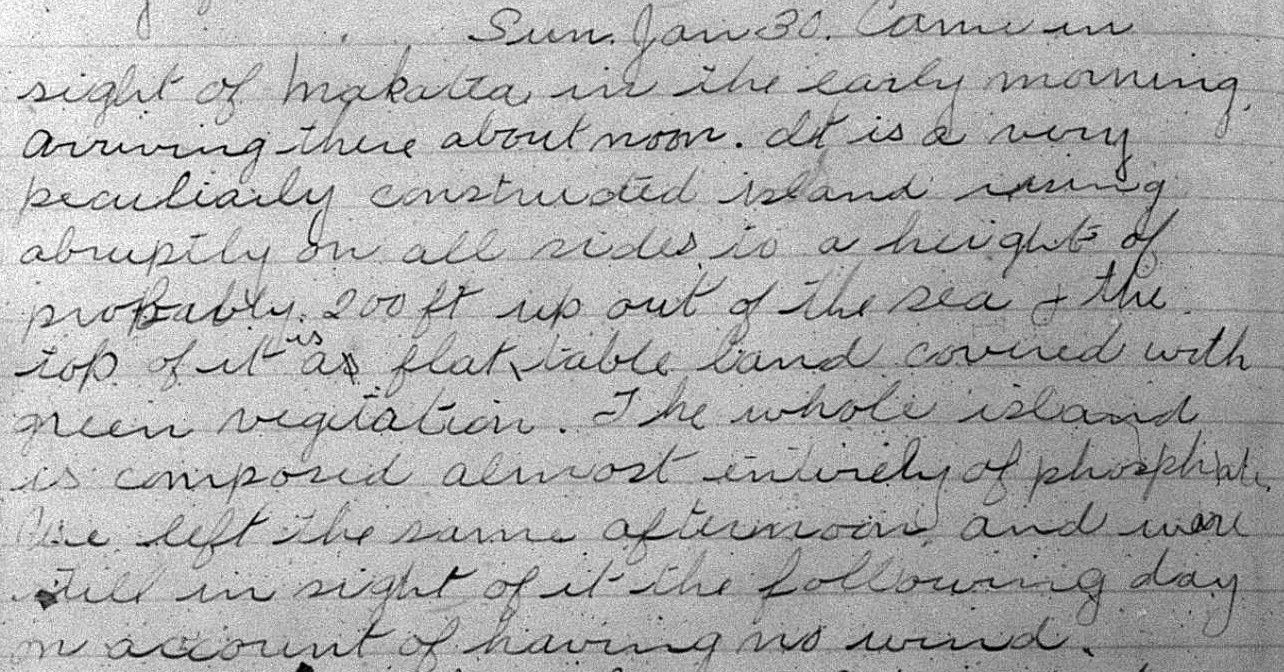 Sun. Jan 30. Came in
sight of Makatea in the early morning,
arriving there about noon. It is a very
peculiarly constructed island rising
abruptly on all sides to a height of
probably 200 ft up out of the sea & the
top of it is a flat table land covered with
green vegitation. The whole island
is composed almost entirely of phosphate.
We left the same afternoon and were
still in sight of it the following day
on account of having no wind.